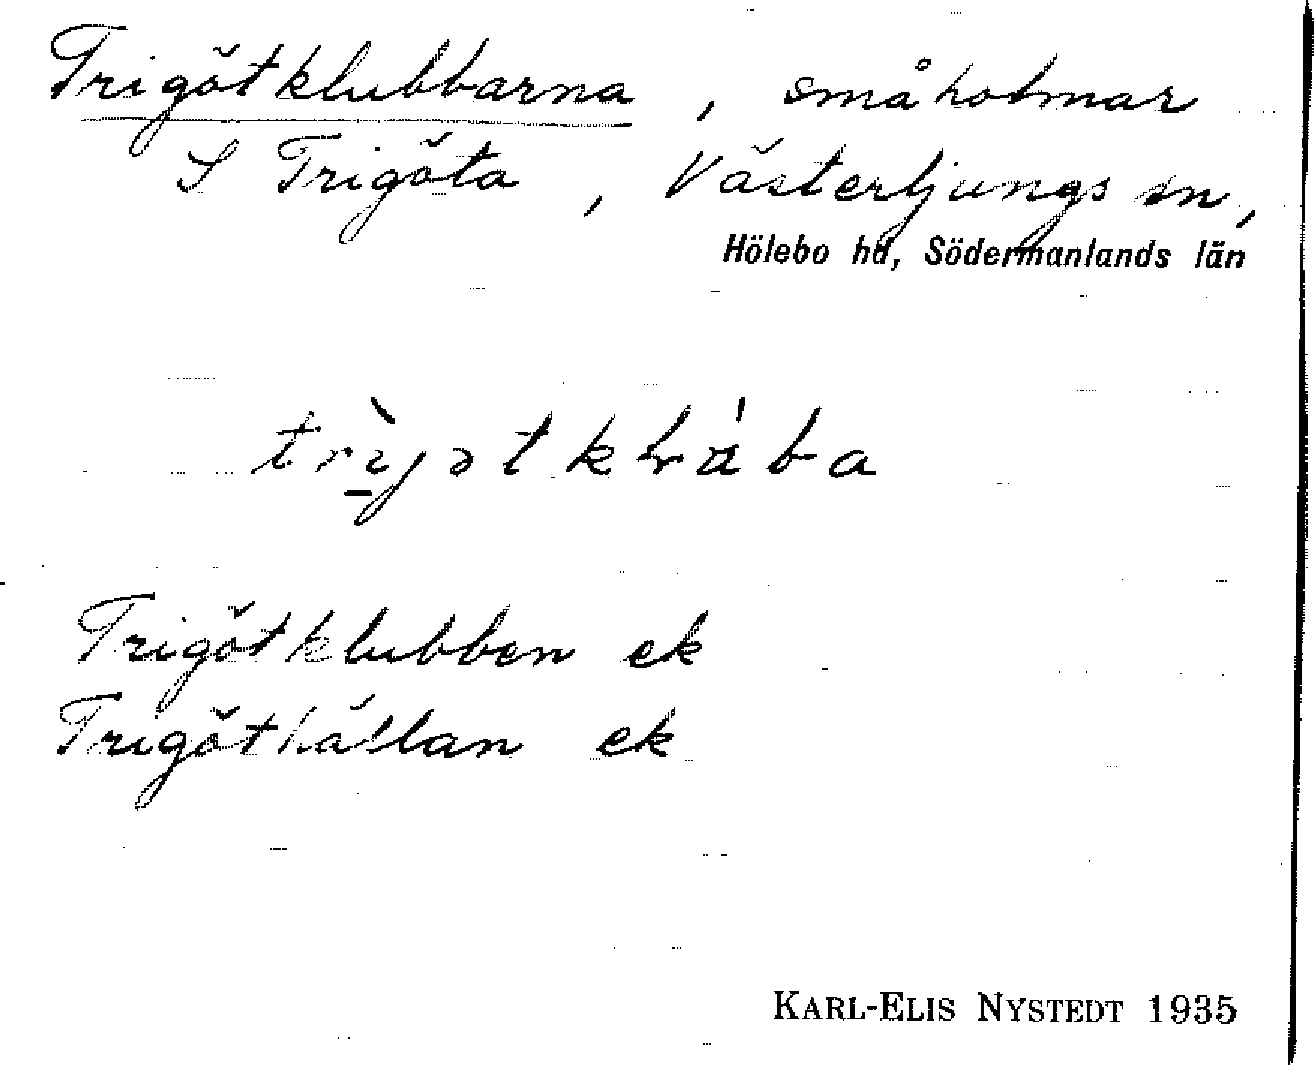 Trigötklubbarna, småholmar
S Trigöta, Västerljungs sn,
Hölebo hd, Södermanlands län
Trigötklubben ek
Trigöthällan ek
KARL-ELIS NYSTEDT 1935